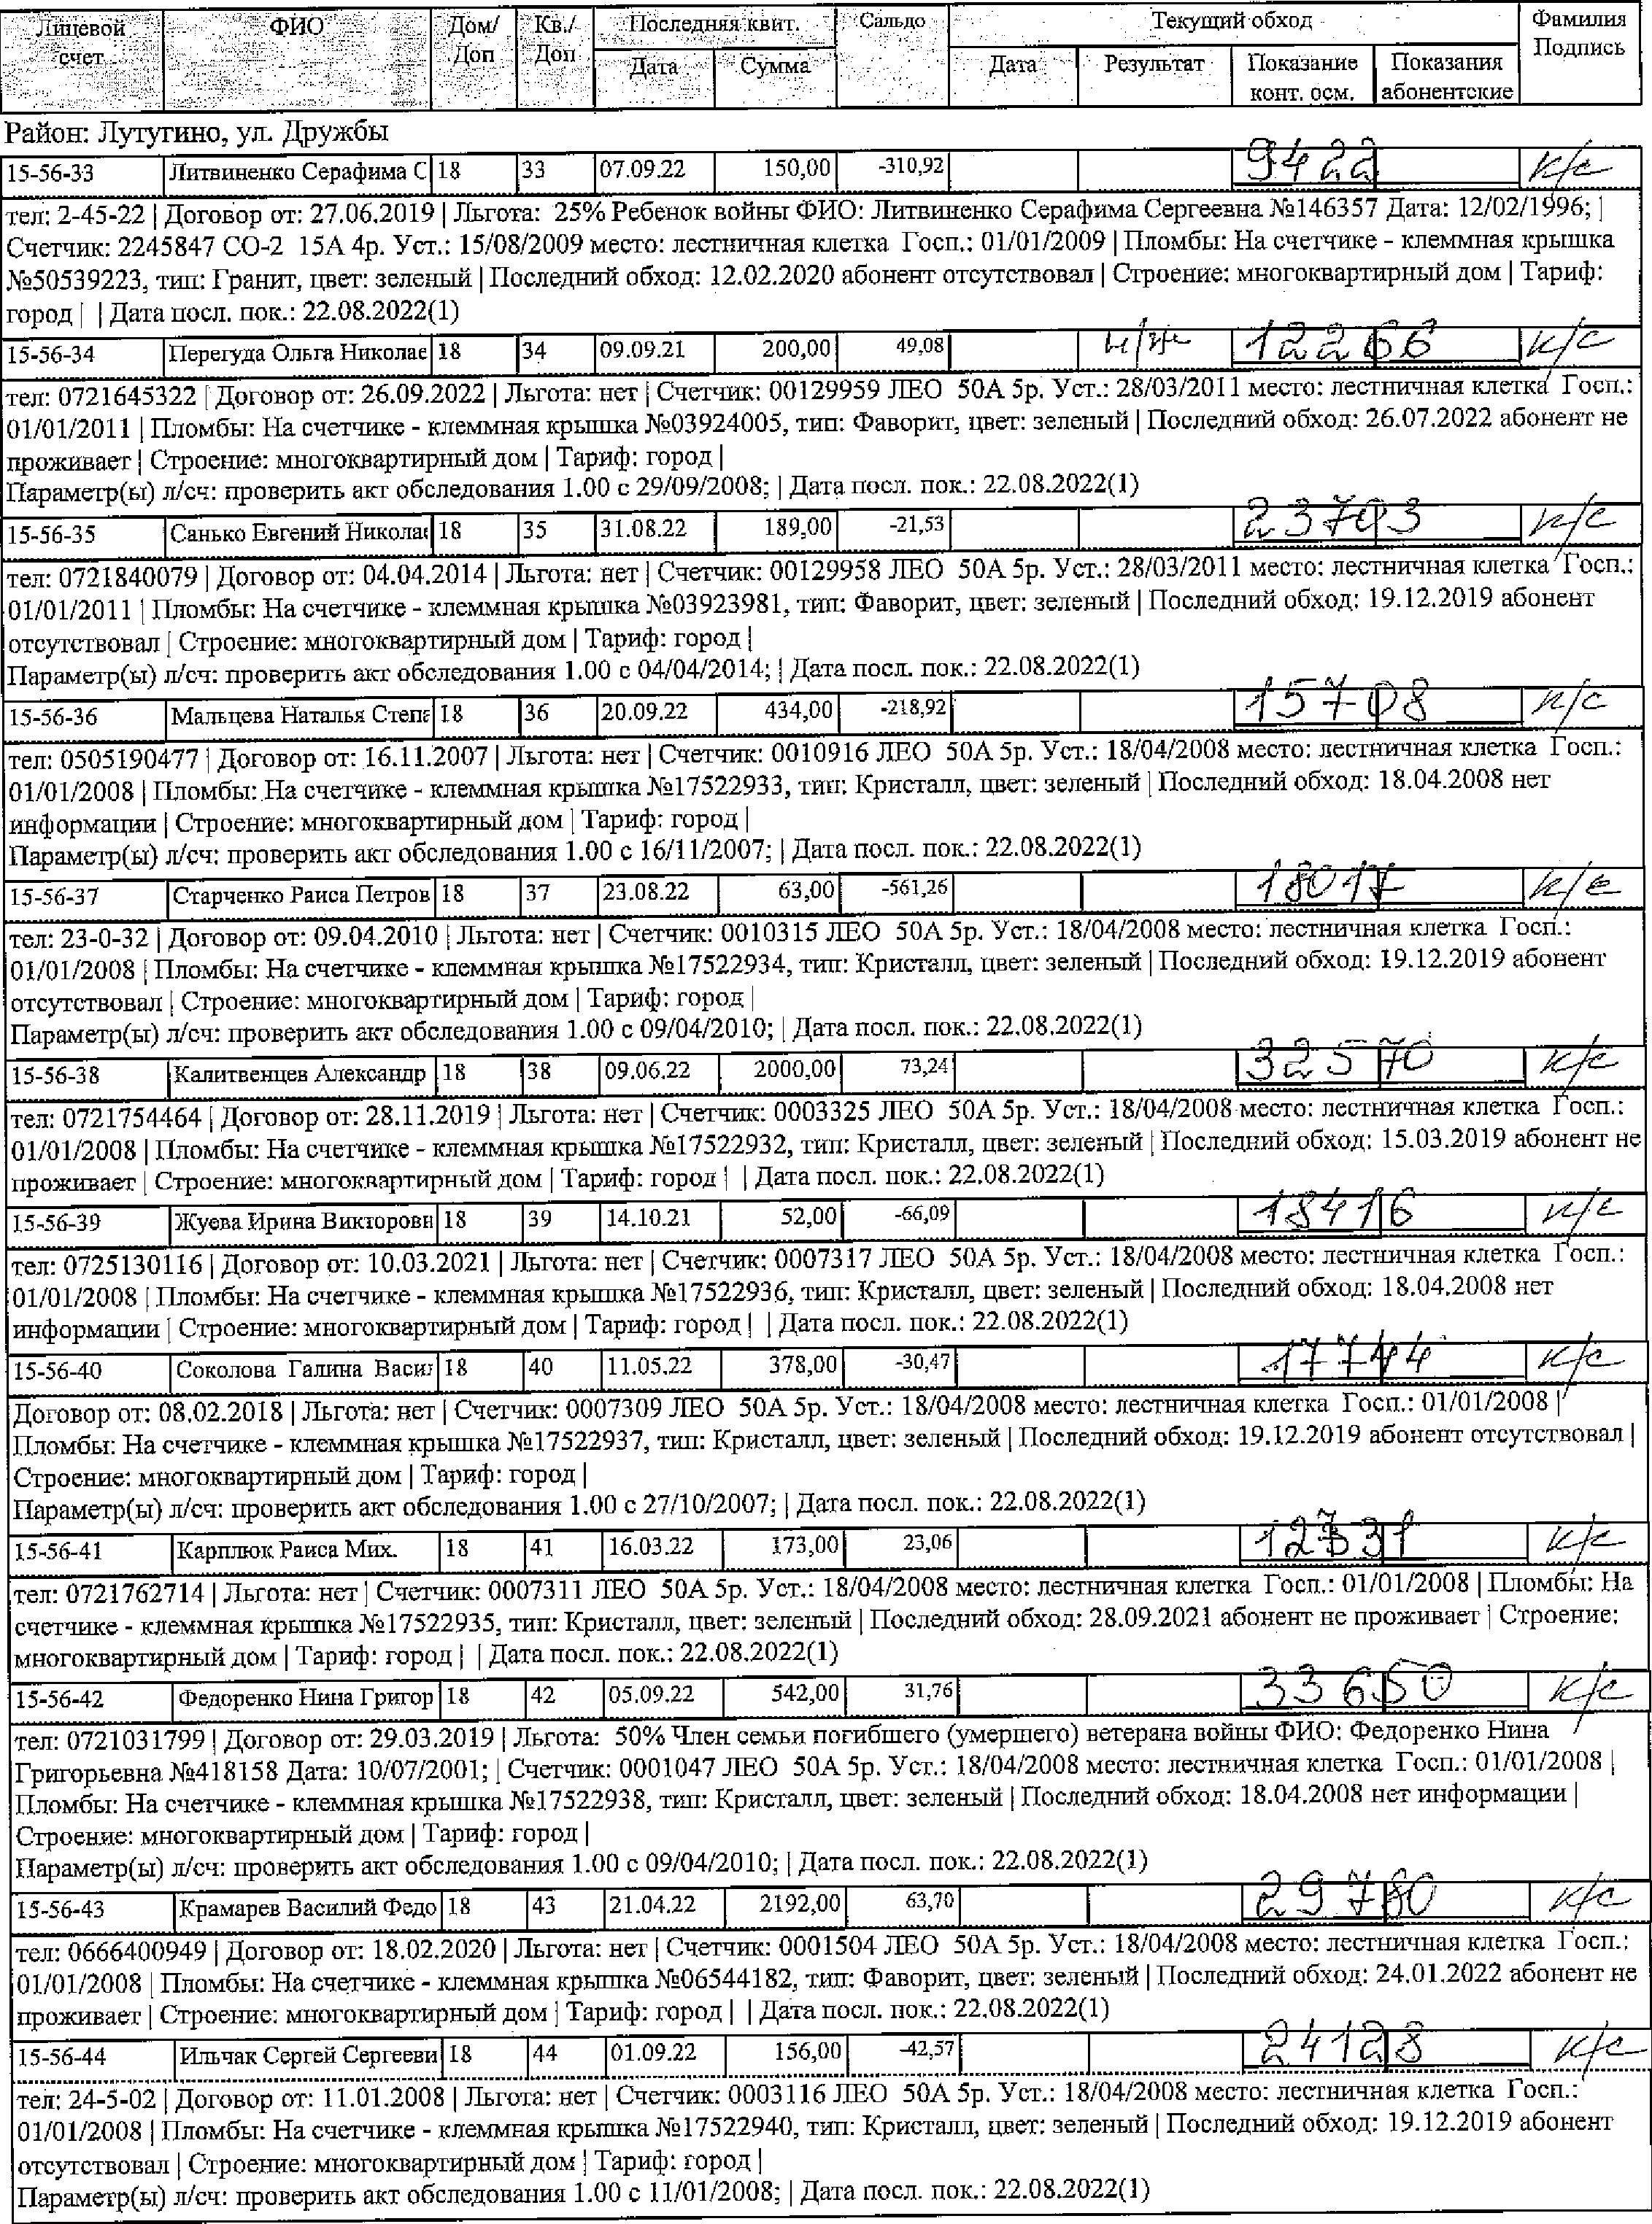 Лицевой счет ФИО Дом/Доп Кв./Доп Последняя квит. Сальдо Текущий обход Фамилия Подпись
Дата Сумма Дата Результат Показание конт. осм. Показания абонентские
Район: Лутугино, ул. Дружбы
15-56-33 Литвиненко Серафима С 18 33 07.09.22 150,00 -310,92 9422 к/с
тел: 2-45-22 | Договор от: 27.06.2019 | Льгота: 25% Ребенок войны ФИО: Литвиненко Серафима Сергеевна №146357 Дата: 12/02/1996; |
Счетчик: 2245847 СО-2 15А 4р. Уст.: 15/08/2009 место: лестничная клетка Госп.: 01/01/2009 | Пломбы: На счетчике - клеммная крышка
№50539223, тип: Гранит, цвет: зеленый | Последний обход: 12.02.2020 абонент отсутствовал | Строение: многоквартирный дом | Тариф:
город | | Дата посл. пок.: 22.08.2022(1)
15-56-34 Перегуда Ольга Николае 18 34 09.09.21 200,00 49,08 н/ж 12266 к/с
тел: 0721645322 | Договор от: 26.09.2022 | Льгота: нет | Счетчик: 00129959 ЛЕО 50А 5р. Уст.: 28/03/2011 место: лестничная клетка Госп.:
01/01/2011 | Пломбы: На счетчике - клеммная крышка №03924005, тип: Фаворит, цвет: зеленый | Последний обход: 26.07.2022 абонент не
проживает | Строение: многоквартирный дом | Тариф: город |
Параметр(ы) л/сч: проверить акт обследования 1.00 с 29/09/2008; | Дата посл. пок.: 22.08.2022(1)
15-56-35 Санько Евгений Никола 18 35 31.08.22 189,00 -21,53 23703 к/с
тел: 0721840079 | Договор от: 04.04.2014 | Льгота: нет | Счетчик: 00129958 ЛЕО 50А 5р. Уст.: 28/03/2011 место: лестничная клетка Госп.:
01/01/2011 | Пломбы: На счетчике - клеммная крышка №03923981, тип: Фаворит, цвет: зеленый | Последний обход: 19.12.2019 абонент
отсутствовал | Строение: многоквартирный дом | Тариф: город |
Параметр(ы) л/сч: проверить акт обследования 1.00 с 04/04/2014; | Дата посл. пок.: 22.08.2022(1)
15-56-36 Мальцева Наталья Степа 18 36 20.09.22 434,00 -218,92 15708 к/с
тел: 0505190477 | Договор от: 16.11.2007 | Льгота: нет | Счетчик: 0010916 ЛЕО 50А 5р. Уст.: 18/04/2008 место: лестничная клетка Госп.:
01/01/2008 | Пломбы: На счетчике - клеммная крышка №17522933, тип: Кристалл, цвет: зеленый | Последний обход: 18.04.2008 нет
информации | Строение: многоквартирный дом | Тариф: город |
Параметр(ы) л/сч: проверить акт обследования 1.00 с 16/11/2007; | Дата посл. пок.: 22.08.2022(1)
15-56-37 Старченко Раиса Петров 18 37 23.08.22 63,00 -561,26 18017 к/с
тел: 23-0-32 | Договор от: 09.04.2010 | Льгота: нет | Счетчик: 0010315 ЛЕО 50А 5р. Уст.: 18/04/2008 место: лестничная клетка Госп.:
01/01/2008 | Пломбы: На счетчике - клеммная крышка №17522934, тип: Кристалл, цвет: зеленый | Последний обход: 19.12.2019 абонент
отсутствовал | Строение: многоквартирный дом | Тариф: город |
Параметр(ы) л/сч: проверить акт обследования 1.00 с 09/04/2010; | Дата посл. пок.: 22.08.2022(1)
15-56-38 Калитвенцев Александр 18 38 09.06.22 2000,00 73,24 32570 к/с
тел: 0721754464 | Договор от: 28.11.2019 | Льгота: нет | Счетчик: 0003325 ЛЕО 50А 5р. Уст.: 18/04/2008 место: лестничная клетка Госп.:
01/01/2008 | Пломбы: На счетчике - клеммная крышка №17522932, тип: Кристалл, цвет: зеленый | Последний обход: 15.03.2019 абонент не
проживает | Строение: многоквартирный дом | Тариф: город | | Дата посл. пок.: 22.08.2022(1)
15-56-39 Жуева Ирина Викторовн 18 39 14.10.21 52,00 -66,09 18416 к/с
тел: 0725130116 | Договор от: 10.03.2021 | Льгота: нет | Счетчик: 0007317 ЛЕО 50А 5р. Уст.: 18/04/2008 место: лестничная клетка Госп.:
01/01/2008 | Пломбы: На счетчике - клеммная крышка №17522936, тип: Кристалл, цвет: зеленый | Последний обход: 18.04.2008 нет
информации | Строение: многоквартирный дом | Тариф: город | | Дата посл. пок.: 22.08.2022(1)
15-56-40 Соколова Галина Васил 18 40 11.05.22 378,00 -30,47 17744 к/с
Договор от: 08.02.2018 | Льгота: нет | Счетчик: 0007309 ЛЕО 50А 5р. Уст.: 18/04/2008 место: лестничная клетка Госп.: 01/01/2008 |
Пломбы: На счетчике - клеммная крышка №17522937, тип: Кристалл, цвет: зеленый | Последний обход: 19.12.2019 абонент отсутствовал |
Строение: многоквартирный дом | Тариф: город |
Параметр(ы) л/сч: проверить акт обследования 1.00 с 27/10/2007; | Дата посл. пок.: 22.08.2022(1)
15-56-41 Карплюк Раиса Мих. 18 41 16.03.22 173,00 23,06 к/с
тел: 0721762714 | Льгота: нет | Счетчик: 0007311 ЛЕО 50А 5р. Уст.: 18/04/2008 место: лестничная клетка Госп.: 01/01/2008 | Пломбы: На
счетчике - клеммная крышка №17522935, тип: Кристалл, цвет: зеленый | Последний обход: 28.09.2021 абонент не проживает | Строение:
многоквартирный дом | Тариф: город | | Дата посл. пок.: 22.08.2022(1)
15-56-42 Федоренко Нина Григор 18 42 05.09.22 542,00 31,76 33650 к/с
тел: 0721031799 | Договор от: 29.03.2019 | Льгота: 50% Член семьи погибшего (умершего) ветерана войны ФИО: Федоренко Нина
Григорьевна №418158 Дата: 10/07/2001; | Счетчик: 0001047 ЛЕО 50А 5р. Уст.: 18/04/2008 место: лестничная клетка Госп.: 01/01/2008 |
Пломбы: На счетчике - клеммная крышка №17522938, тип: Кристалл, цвет: зеленый | Последний обход: 18.04.2008 нет информации |
Строение: многоквартирный дом | Тариф: город |
Параметр(ы) л/сч: проверить акт обследования 1.00 с 09/04/2010; | Дата посл. пок.: 22.08.2022(1)
15-56-43 Крамарев Василий Федо 18 43 21.04.22 2192,00 63,70 к/с
тел: 0666400949 | Договор от: 18.02.2020 | Льгота: нет | Счетчик: 0001504 ЛЕО 50А 5р. Уст.: 18/04/2008 место: лестничная клетка Госп.:
01/01/2008 | Пломбы: На счетчике - клеммная крышка №06544182, тип: Фаворит, цвет: зеленый | Последний обход: 24.01.2022 абонент не
проживает | Строение: многоквартирный дом | Тариф: город | | Дата посл. пок.: 22.08.2022(1)
15-56-44 Ильчак Сергей Сергееви 18 44 01.09.22 156,00 -42,57 24128 к/с
тел: 24-5-02 | Договор от: 11.01.2008 | Льгота: нет | Счетчик: 0003116 ЛЕО 50А 5р. Уст.: 18/04/2008 место: лестничная клетка Госп.:
01/01/2008 | Пломбы: На счетчике - клеммная крышка №17522940, тип: Кристалл, цвет: зеленый | Последний обход: 19.12.2019 абонент
отсутствовал | Строение: многоквартирный дом | Тариф: город |
Параметр(ы) л/сч: проверить акт обследования 1.00 с 11/01/2008; | Дата посл. пок.: 22.08.2022(1)